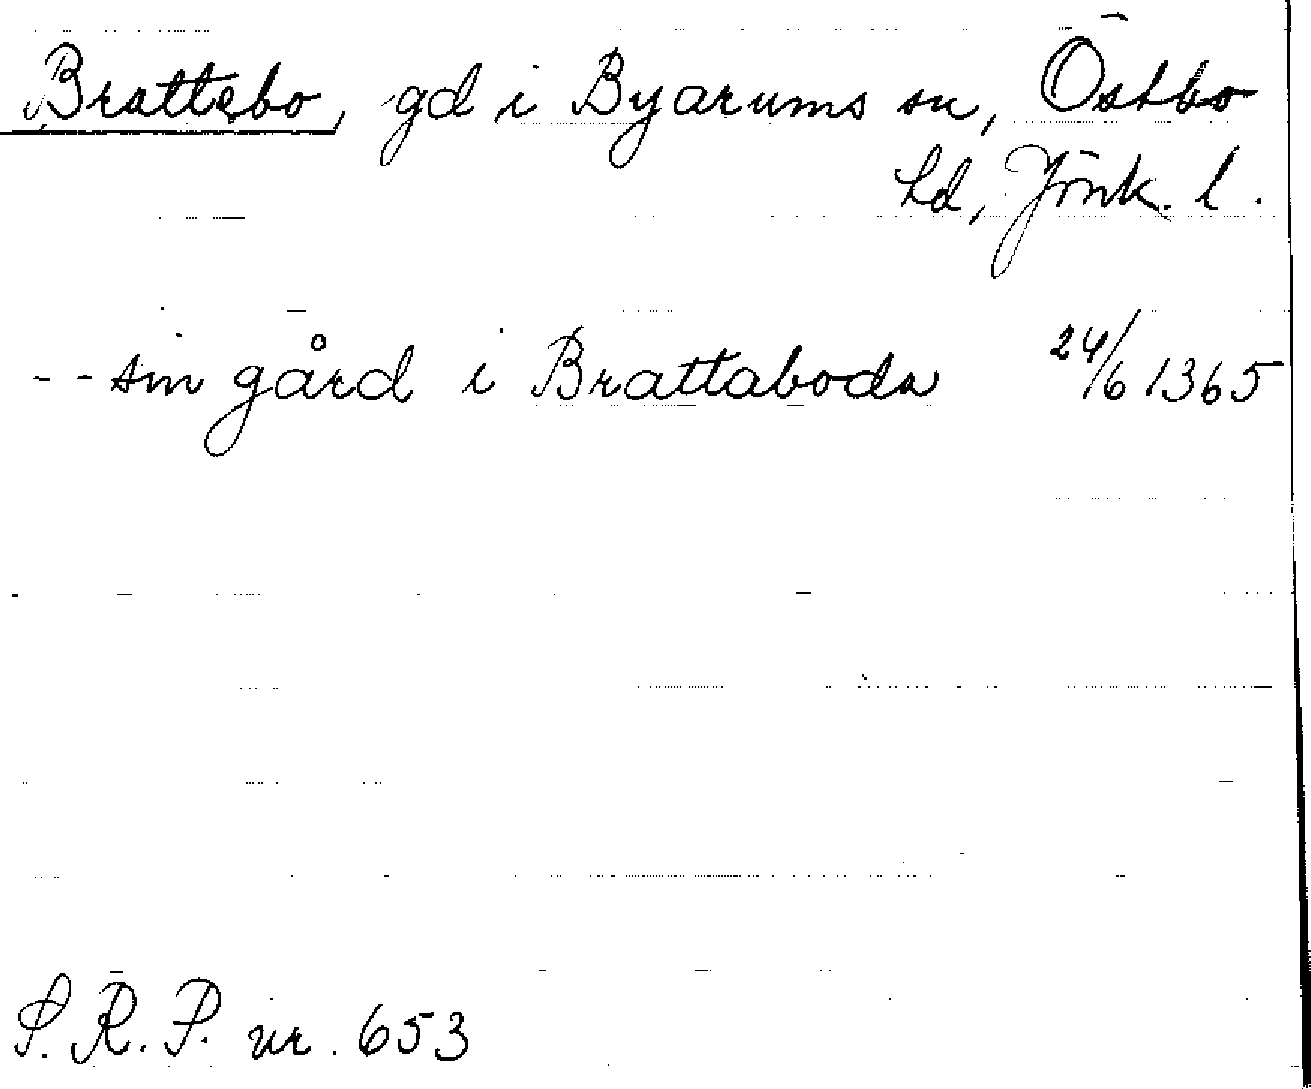 Brattebo, gd i Byarums sn, Östbo
hd, Jönk. l.
-- sin gård i Brattaboda 24/6 1365
S.R.P. nr. 653